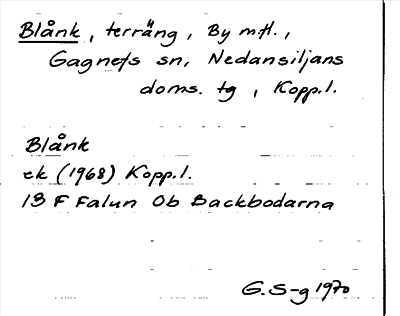 Blånk, terräng, By mfl.,
Gagnefs sn, Nedansiljans
doms. tg, Kopp.l.
Blånk
ek (1968) Kopp.l.
13 F Falun Ob Backbodarna
G.S-g 1970